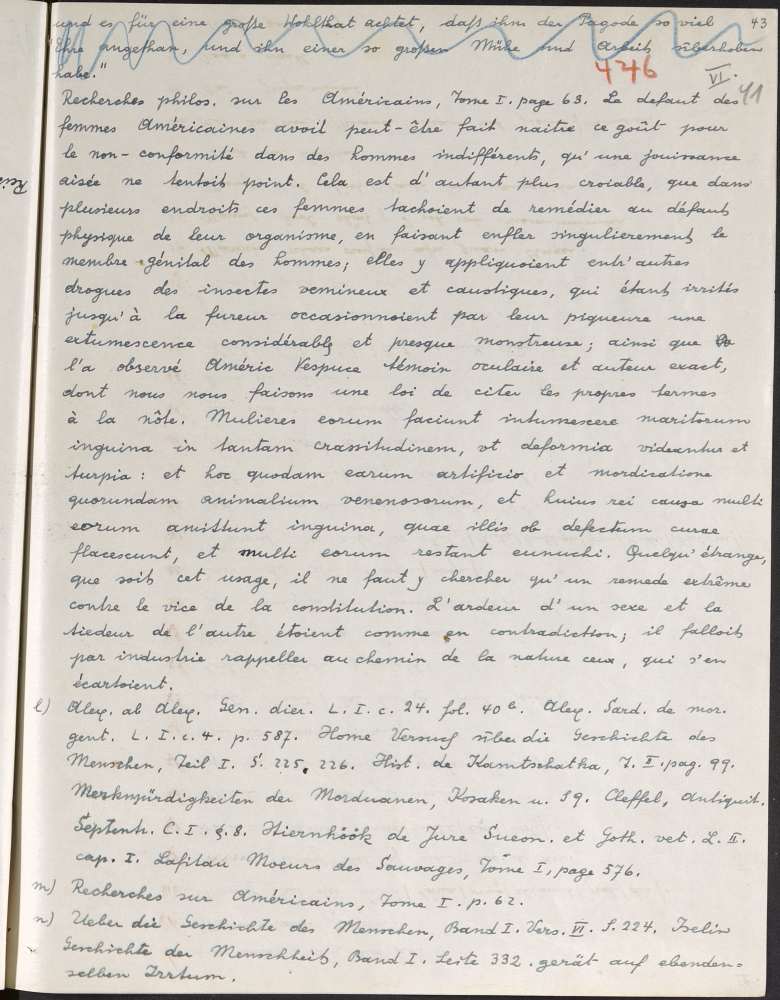 und es für eine große Wohlthat achtet, daß ihm der Pagode so viel 43
Ehre angethan, und ihn einer so großen Mühe und Arbeit überhoben
habe."
446 VI. 41
Recherches philos. sur les Américains, Tome I. page 63. Le defaut des
femmes Américaines avoit peut-être fait naitre ce goût pour
le non-conformité dans des hommes indifférents, qu'une jouissance
aisée ne tentoit point. Cela est d'autant plus croiable, que dans
plusieurs endroits ces femmes tachoient de remédier au défaut
physique de leur organisme, en faisant enfler singulierement le
membre génital des hommes; elles y appliquoient entr'autres
drogues des insectes vemineux et caustiques, qui étant irrités
jusqu'à la fureur occasionnoient par leur piqueure une
extumescence considérable et presque monstreuse; ainsi que
l'a observé Améric Vespuce témoin oculaire et auteur exact,
dont nous nous faisons une loi de citer les propres termes
à la nôte. Mulieres eorum faciunt intumescere maritorum
inguina in tantam crassitudinem, ut deformia videantur et
turpia: et hoc quodam earum artificio et mordicatione
quorundam animalium venenosorum, et huius rei causa multi
eorum amittunt inguina, quae illis ob defectum curae
flacescunt, et multi eorum restant eunuchi. Quelqu'étrange,
que soit cet usage, il ne faut y chercher qu'un remede extrême
contre le vice de la constitution. L'ardeur d'un sexe et la
tiedeur de l'autre étoient comme en contradiction; il falloit
par industrie rappeller au chemin de la nature ceux, qui s'en
écartoient.
l) Alex. ab Alex. Gen. dier. L. I. c. 24. fol. 40 b. Alex. Sard. de mor.
gent. L. I. c. 4. p. 587. Home Versuch über die Geschichte des
Menschen, Teil I. S. 225, 226. Hist. de Kamtschatka, T. II. pag. 99.
Merkwürdigkeiten der Morduanen, Kosaken u. 59. Cleffel, Antiquit.
Septentr. C. I. §. 8. Stiernhöök de Jure Sueon. et Goth. vet. L. II.
cap. I. Lafitau Moeurs des Sauvages, Tome I, page 576.
m) Recherches sur Américains, Tome I. p. 62.
n) Ueber die Geschichte des Menschen, Band I. Vers. VI. S. 224. Iselin
Geschichte der Menschheit, Band I. Seite 332. gerät auf ebenden=
selben Irrtum.